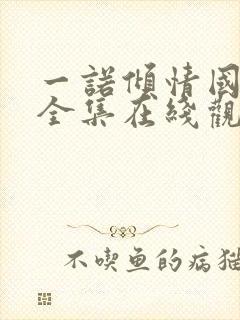 一諾傾情國
全集在綫觀
不喫鱼的病猫